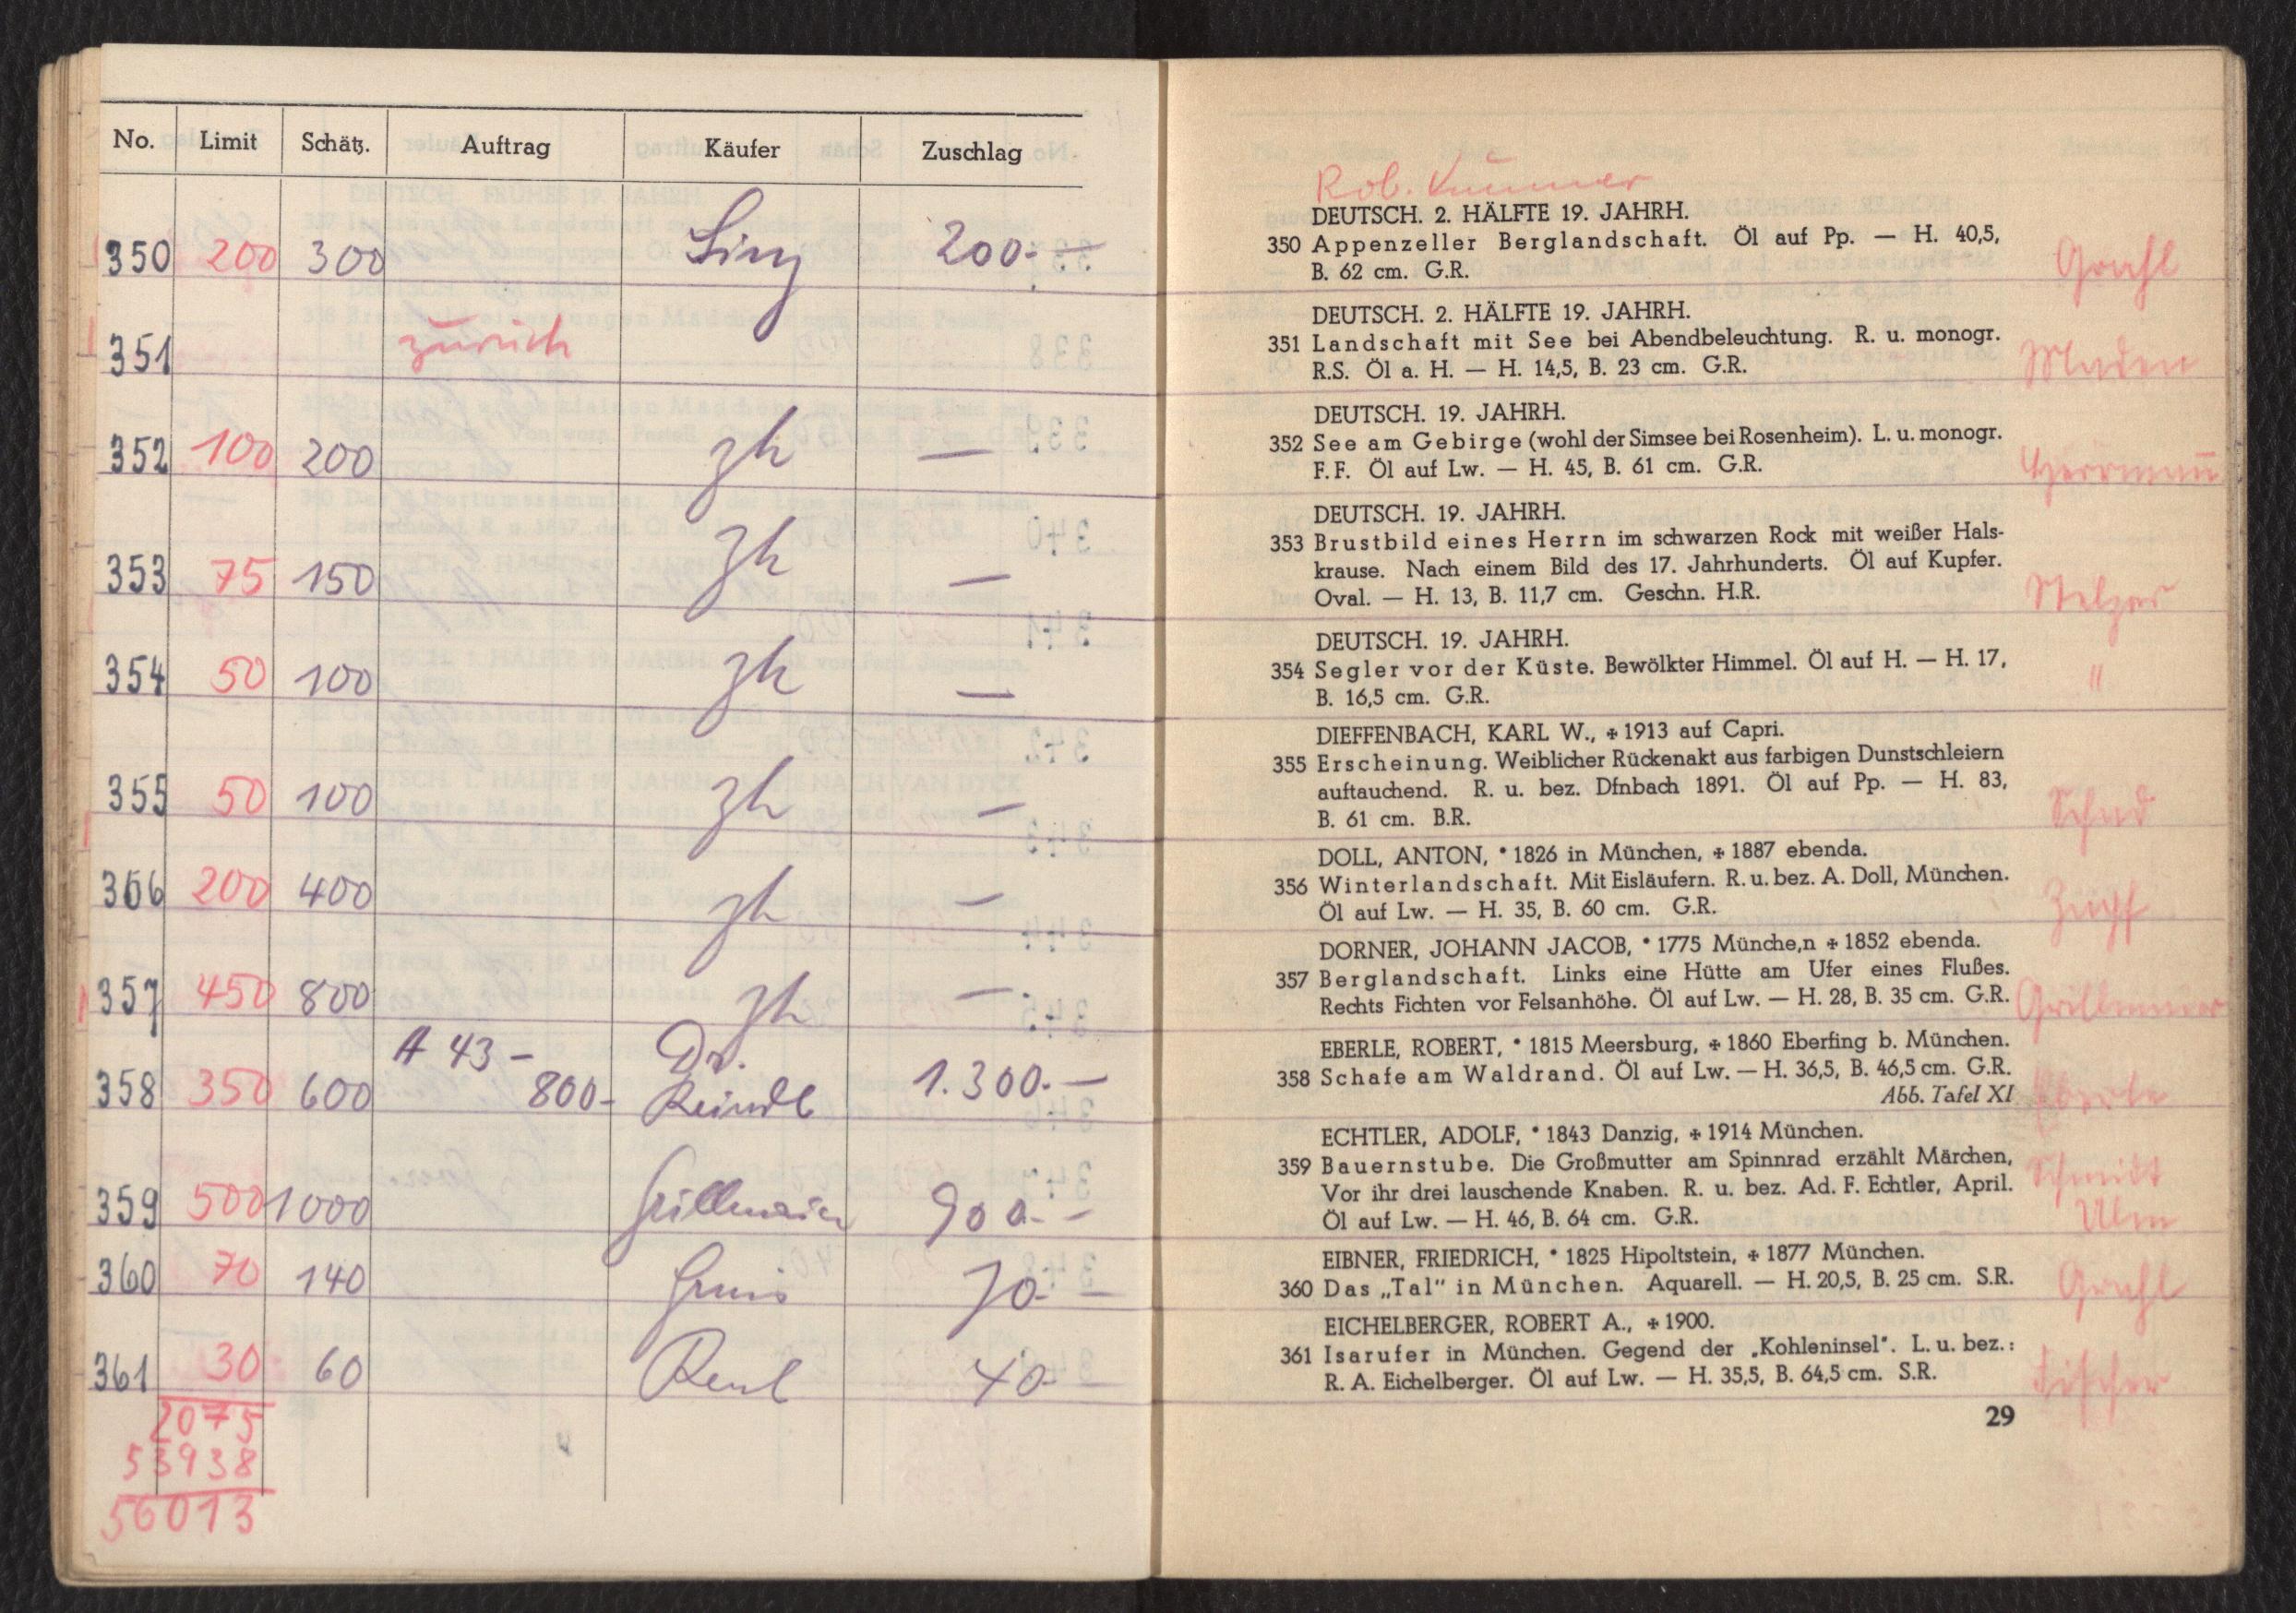 No. Limit Schätz. Auftrag Käufer Zuschlag
350 200 300 200.—
351 zurück
352 100 200 zh —
353 75 150 zh —
354 50 100 zh —
355 50 100 zh —
356 200 400 zh —
357 450 800 zh —
A 43 – Dr.
358 350 600 800- Reindl 1.300.—
359 500 1000 Grillmaier 900.–
360 70 140 70.–
361 30 60 40.–
2075
53938
56013
Rob. Kummer
DEUTSCH. 2. HÄLFTE 19. JAHRH.
350 Appenzeller Berglandschaft. Öl auf Pp. — H. 40,5,
B. 62 cm. G.R. Grahl
DEUTSCH. 2. HÄLFTE 19. JAHRH.
351 Landschaft mit See bei Abendbeleuchtung. R. u. monogr.
R.S. Öl a. H. — H. 14,5, B. 23 cm. G.R.
DEUTSCH. 19. JAHRH.
352 See am Gebirge (wohl der Simsee bei Rosenheim). L. u. monogr.
F. F. Öl auf Lw. — H. 45, B. 61 cm. G.R. Herrmann
DEUTSCH. 19. JAHRH.
353 Brustbild eines Herrn im schwarzen Rock mit weißer Hals-
krause. Nach einem Bild des 17. Jahrhunderts. Öl auf Kupfer.
Oval. — H. 13, B. 11,7 cm. Geschn. H.R. Stelzer
DEUTSCH. 19. JAHRH.
354 Segler vor der Küste. Bewölkter Himmel. Öl auf H. — H. 17,
B. 16,5 cm. G.R. "
DIEFFENBACH, KARL W., ✠ 1913 auf Capri.
355 Erscheinung. Weiblicher Rückenakt aus farbigen Dunstschleiern
auftauchend. R. u. bez. Dfnbach 1891. Öl auf Pp. — H. 83,
B. 61 cm. B.R.
DOLL, ANTON, * 1826 in München, ✠ 1887 ebenda.
356 Winterlandschaft. Mit Eisläufern. R. u. bez. A. Doll, München.
Öl auf Lw. — H. 35, B. 60 cm. G.R.
DORNER, JOHANN JACOB, * 1775 Münche,n ✠ 1852 ebenda.
357 Berglandschaft. Links eine Hütte am Ufer eines Flußes.
Rechts Fichten vor Felsanhöhe. Öl auf Lw. — H. 28, B. 35 cm. G.R.
EBERLE, ROBERT, * 1815 Meersburg, ✠ 1860 Eberfing b. München.
358 Schafe am Waldrand. Öl auf Lw. — H. 36,5, B. 46,5 cm. G.R.
Abb. Tafel XI Eberle
ECHTLER, ADOLF, * 1843 Danzig, ✠ 1914 München.
359 Bauernstube. Die Großmutter am Spinnrad erzählt Märchen,
Vor ihr drei lauschende Knaben. R. u. bez. Ad. F. Echtler, April. Schmidt
Öl auf Lw. — H. 46, B. 64 cm. G.R. Ulm
EIBNER, FRIEDRICH, * 1825 Hipoltstein, ✠ 1877 München.
360 Das „Tal“ in München. Aquarell. — H. 20,5, B. 25 cm. S.R. Grahl
EICHELBERGER, ROBERT A., ✠ 1900.
361 Isarufer in München. Gegend der „Kohleninsel“. L. u. bez.:
R. A. Eichelberger. Öl auf Lw. — H. 35,5, B. 64,5 cm. S.R. Fischer
29